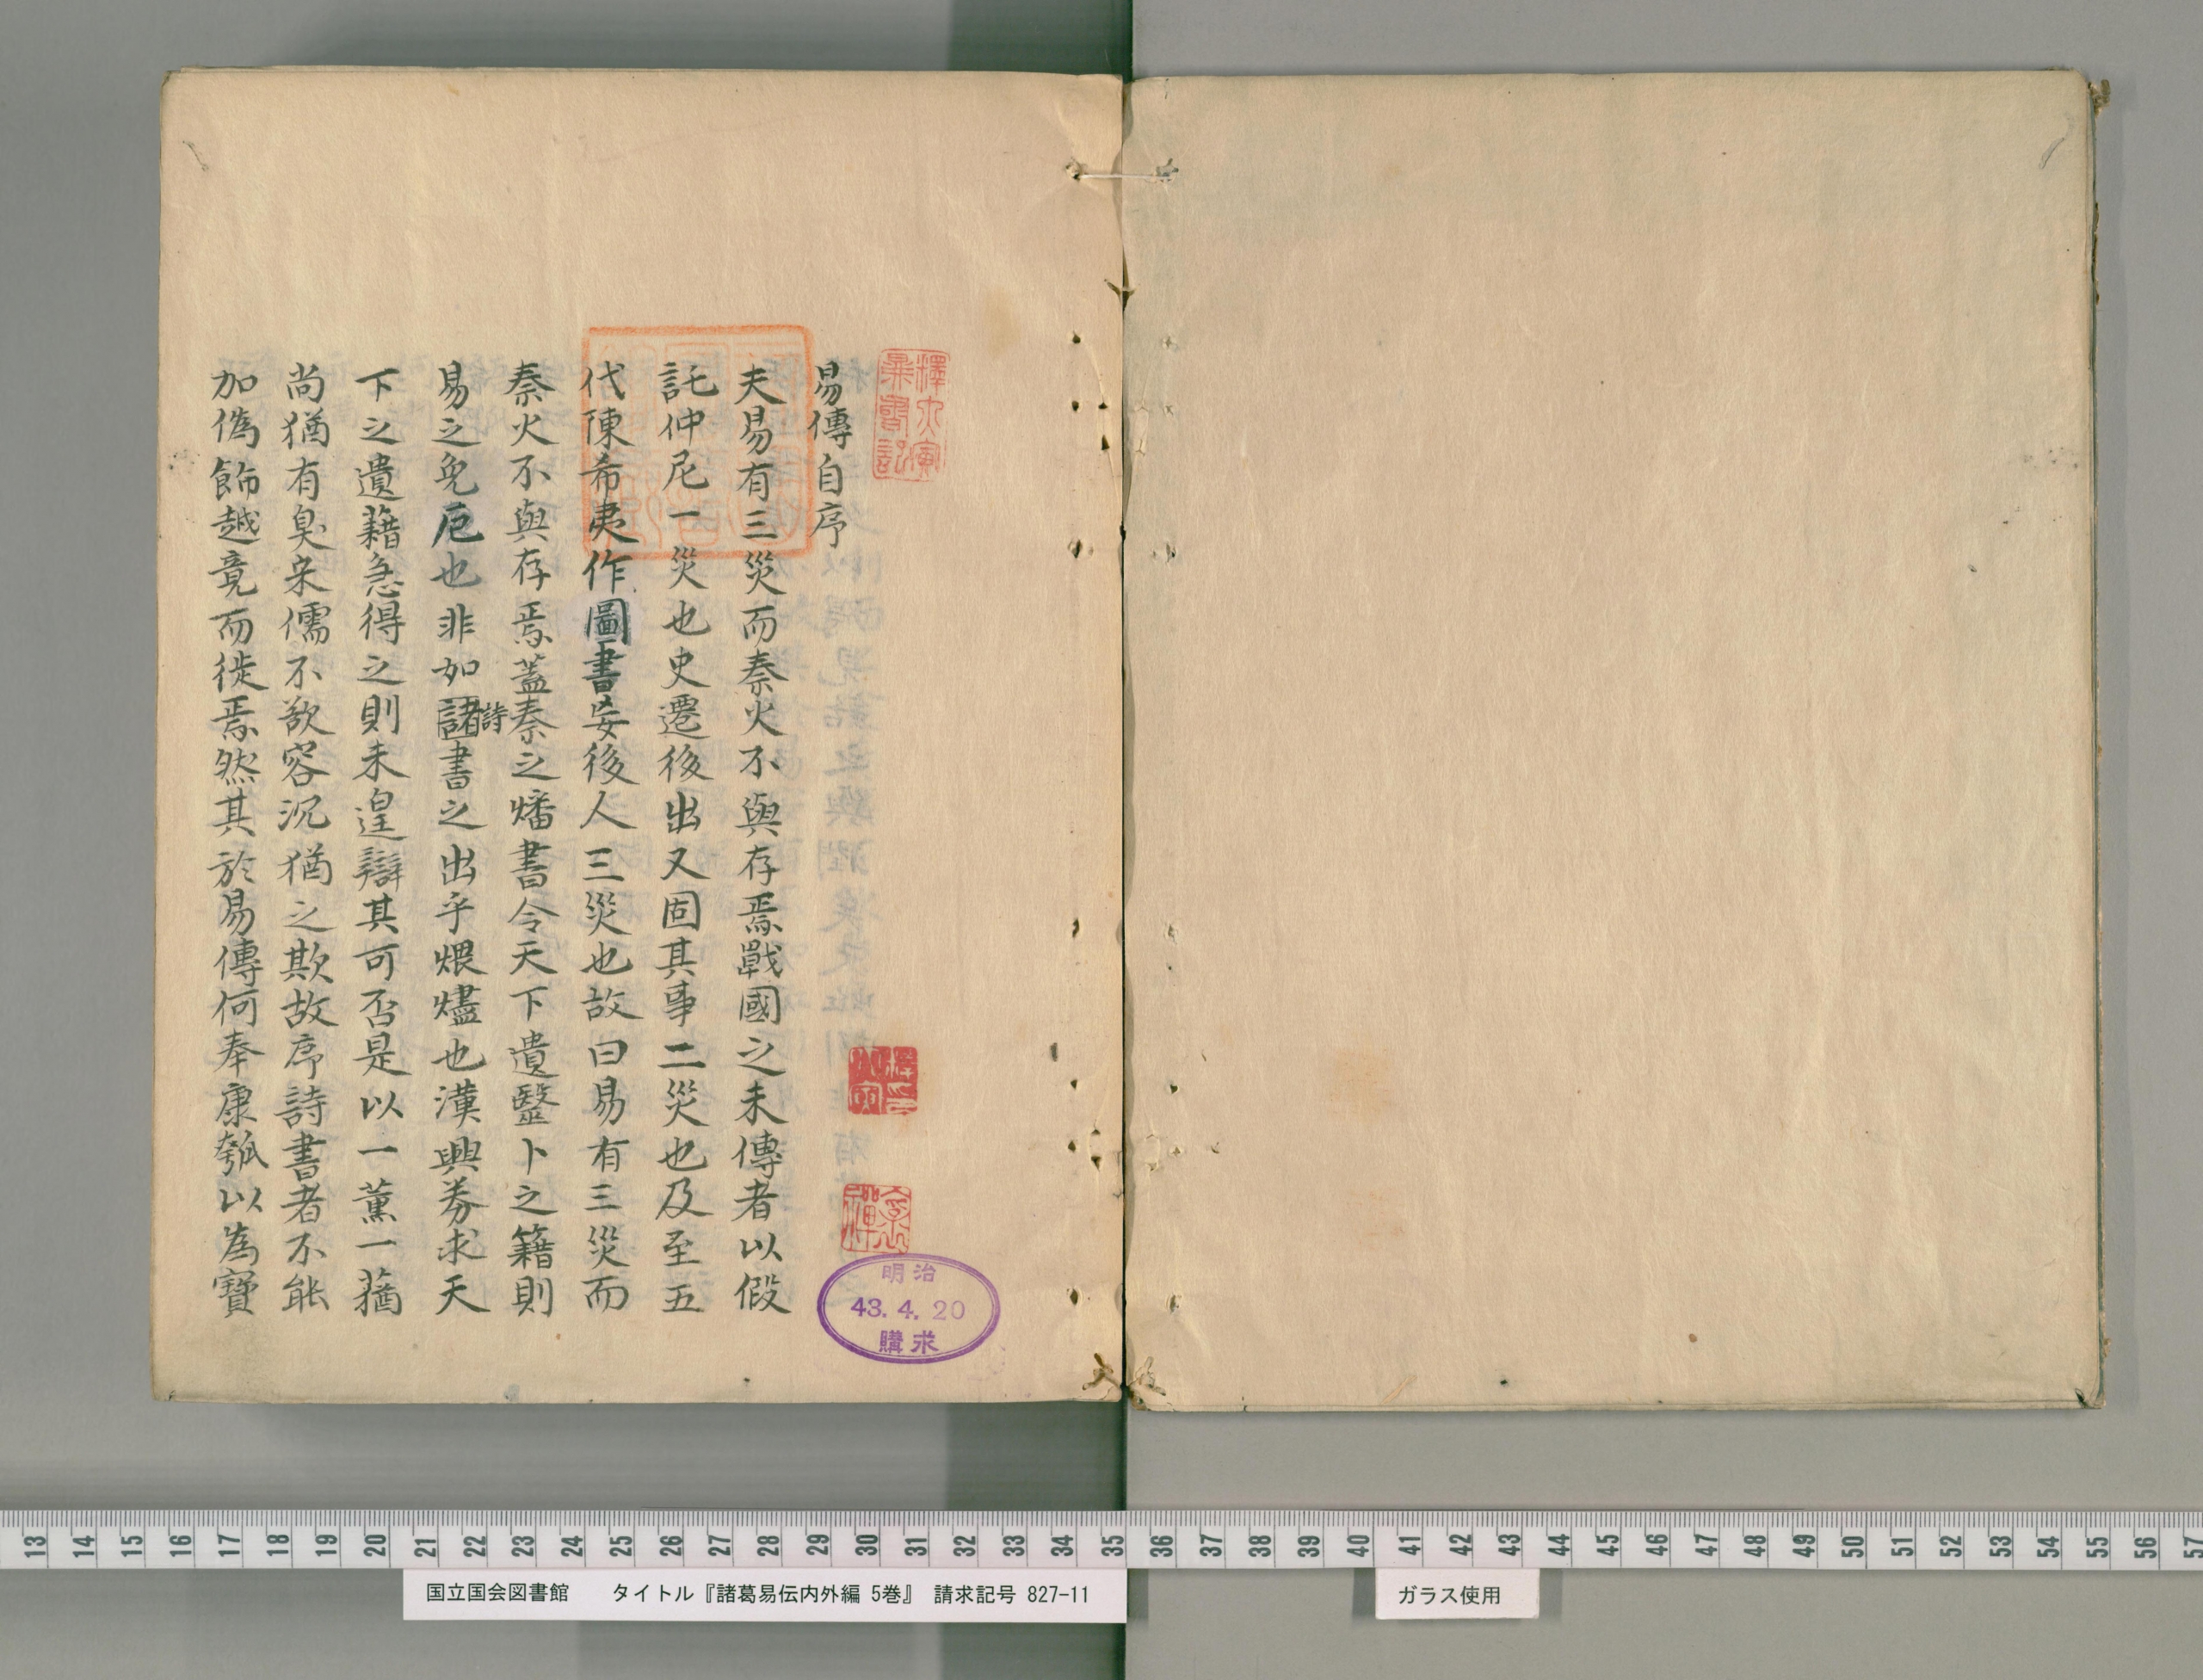 易傳自序
夫易有三災而秦火不與存焉戰國之末傳者以假
託仲尼一災也史遷後出又固其事二災也及至五
代陳希夷作圖書妄後人三災也故曰易有三災而
秦火不與存焉蓋秦之燔書令天下遺醫卜之籍則
易之免厄也非如諸書之出乎煨燼也漢興募求天
詩
下之遺籍急得之則未遑辯其可否是以一薰一蕕
尚猶有臭宋儒不欲容況猶之欺故序詩書者不能
加偽飾越竟而徙焉然其於易傳何奉康瓠以為寶
明治
43.4.20
購求
13 14 15 16 17 18 19 20 21 22 23 24 25 26 27 28 29 30 31 32 33 34 35 36 37 38 39 40 41 42 43 44 45 46 47 48 49 50 51 52 53 54 55 56 57
国立国会図書館 タイトル『諸葛易伝内外編 5巻』 請求記号 827-11
ガラス使用